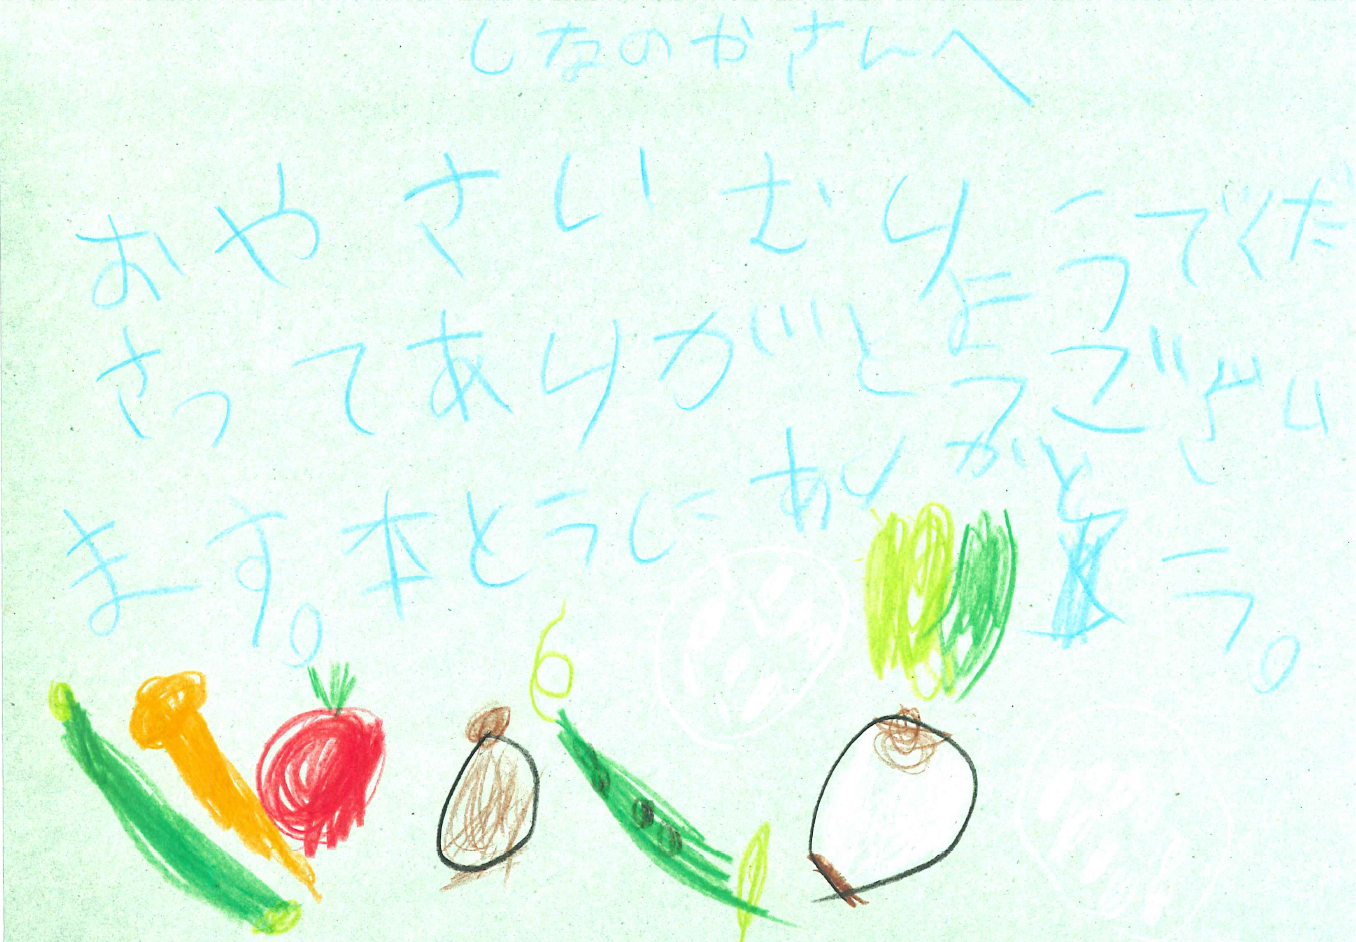 しなのかさんへ
おやさいむりょうでくだ
さってありがとうござい
ます。本とうにありがと
う。